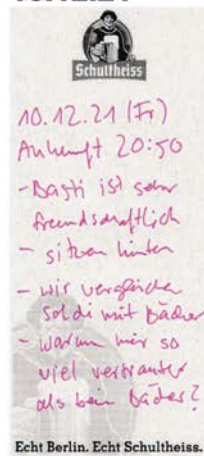 Schultheiss
10.12.21 (Fr)
Ankunft 20:50
- Basti ist sehr
freundschaftlich
- sitzen hinten
- wir vergleichen
soldi mit Bäder
- warum hier so
viel vertrauter
als beim Bäder?
Echt Berlin. Echt Schultheiss.